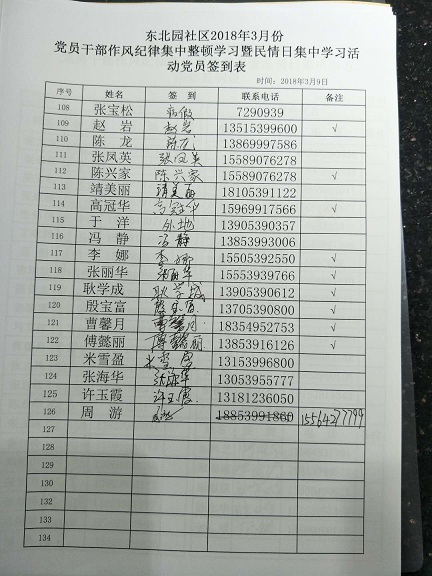 东北园社区2018年3月份
党员干部作风纪律集中整顿学习暨民情日集中学习活
动党员签到表
时间：2018年3月9日
序号 姓名 签 到 联系电话 备注
108 张宝松 病假 7290939
109 赵 岩 赵岩 13515399600 √
110 陈 龙 陈龙 13869997586
111 张凤英 张凤英 15589076278
112 陈兴家 陈兴家 15589076278 √
113 靖美丽 靖美丽 18105391122
114 高冠华 高冠华 15969917566 √
115 于 洋 外地 13905390357
116 冯 静 冯静 13853993006
117 李 娜 李娜 15505392550 √
118 张丽华 张丽华 15553939766 √
119 耿学成 耿学成 13905390612 √
120 殷宝富 殷宝富 13705390800 √
121 曹馨月 曹馨月 18354952753 √
122 傅懿丽 傅懿丽 13853916126 √
123 米雪盈 米雪盈 13153996800
124 张海华 张海华 13053955777
125 许玉霞 许玉霞 13181236050
126 周 游 18853991860 15564277799
127
128
129
130
131
132
133
134